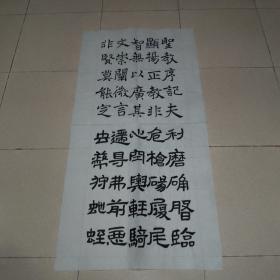 聖教序記夫
顯揚正教非
智無以廣其
文崇闡微言
非賢莫能定
利磨确臨
危槍碭履尾
心輿輕騎
弗前惡
虫狩虵蛭